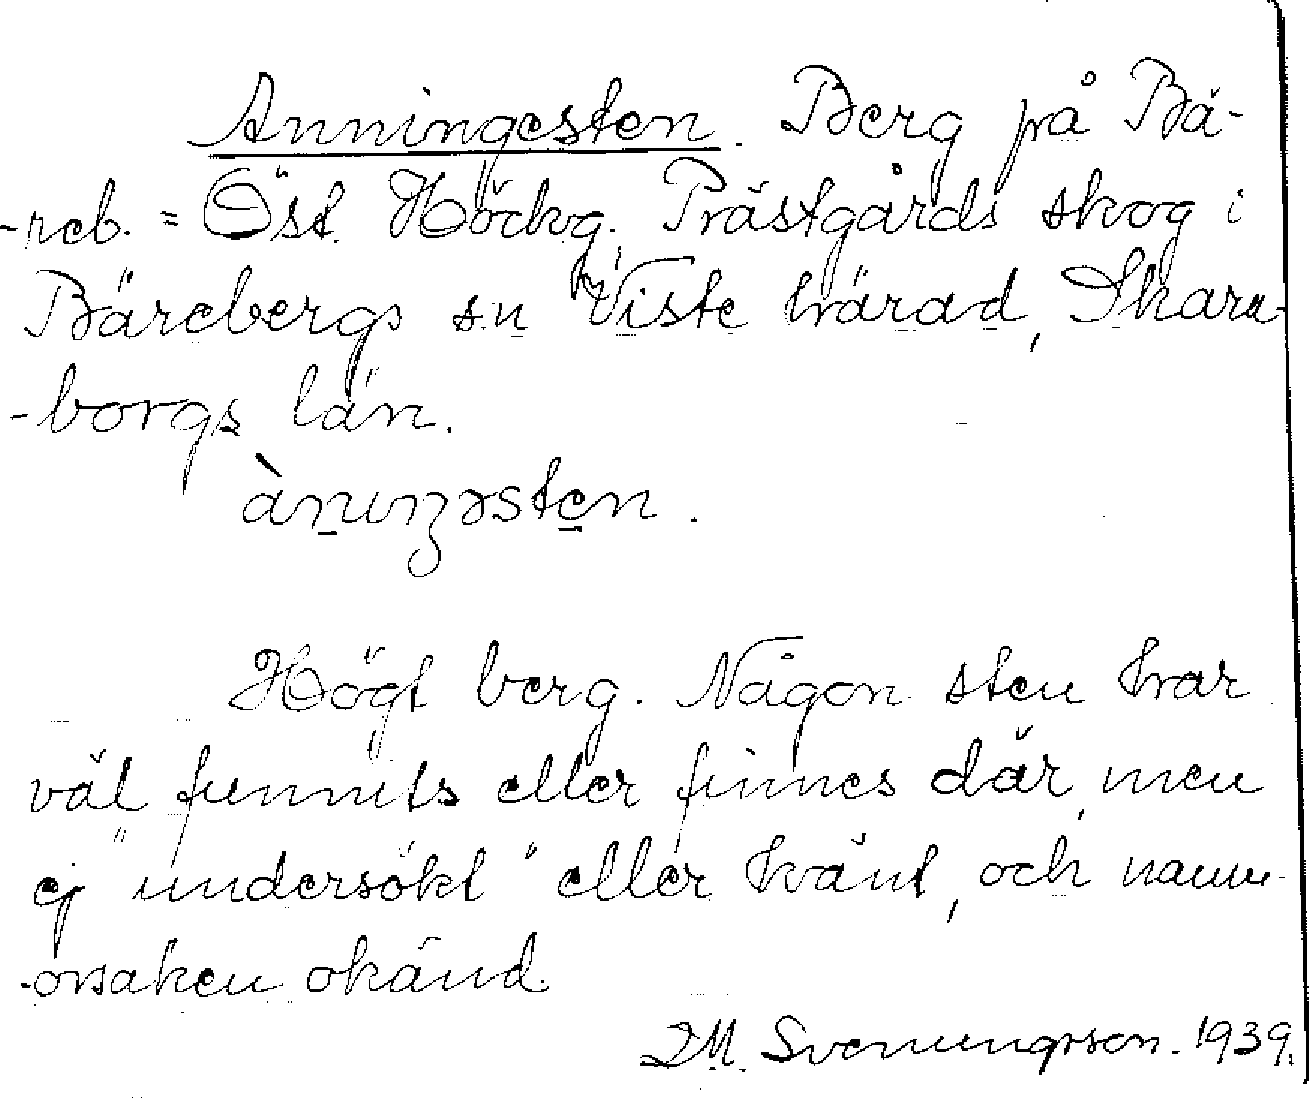 Anningesten. Berg på Bä-
-reb. = Öst. Höckg. Prästgårds skog i
Bärebergs sn Viste härad, Skara-
-borgs län.
ànıŋəsten.
Högt berg. Någon sten har
väl funnits eller finnes där, men
ej "undersökt" eller känt, och namn-
-orsaken okänd.
Svenungsson. 1939.